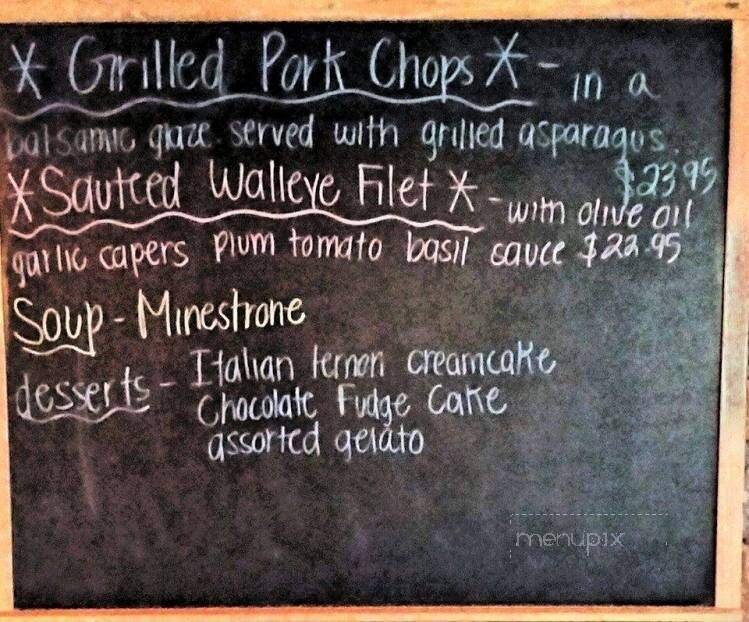 * Grilled Pork Chops * - in a
balsamic glaze served with grilled asparagus.
$23.95
* Sauteed Walleye Filet * - with olive oil
garlic capers plum tomato basil sauce $22.95
Soup - Minestrone
desserts - Italian lemon creamcake
Chocolate Fudge Cake
assorted gelato
menupix